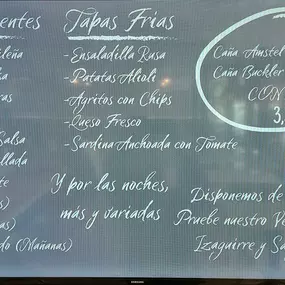 entes
ileña
ia
as
Salsa
llada
te
s)
s)
do (Mañanas)
Tapas Frías
-Ensaladilla Rusa
-Patatas Alioli
-Agritos con Chips
-Queso Fresco
-Sardina Anchoada con Tomate
Y por las noches,
más y variadas
Caña Amstel
Caña Buckler
CON
3,
Disponemos de
Pruebe nuestro Ve
Izaguirre y Sa
SAMSUNG